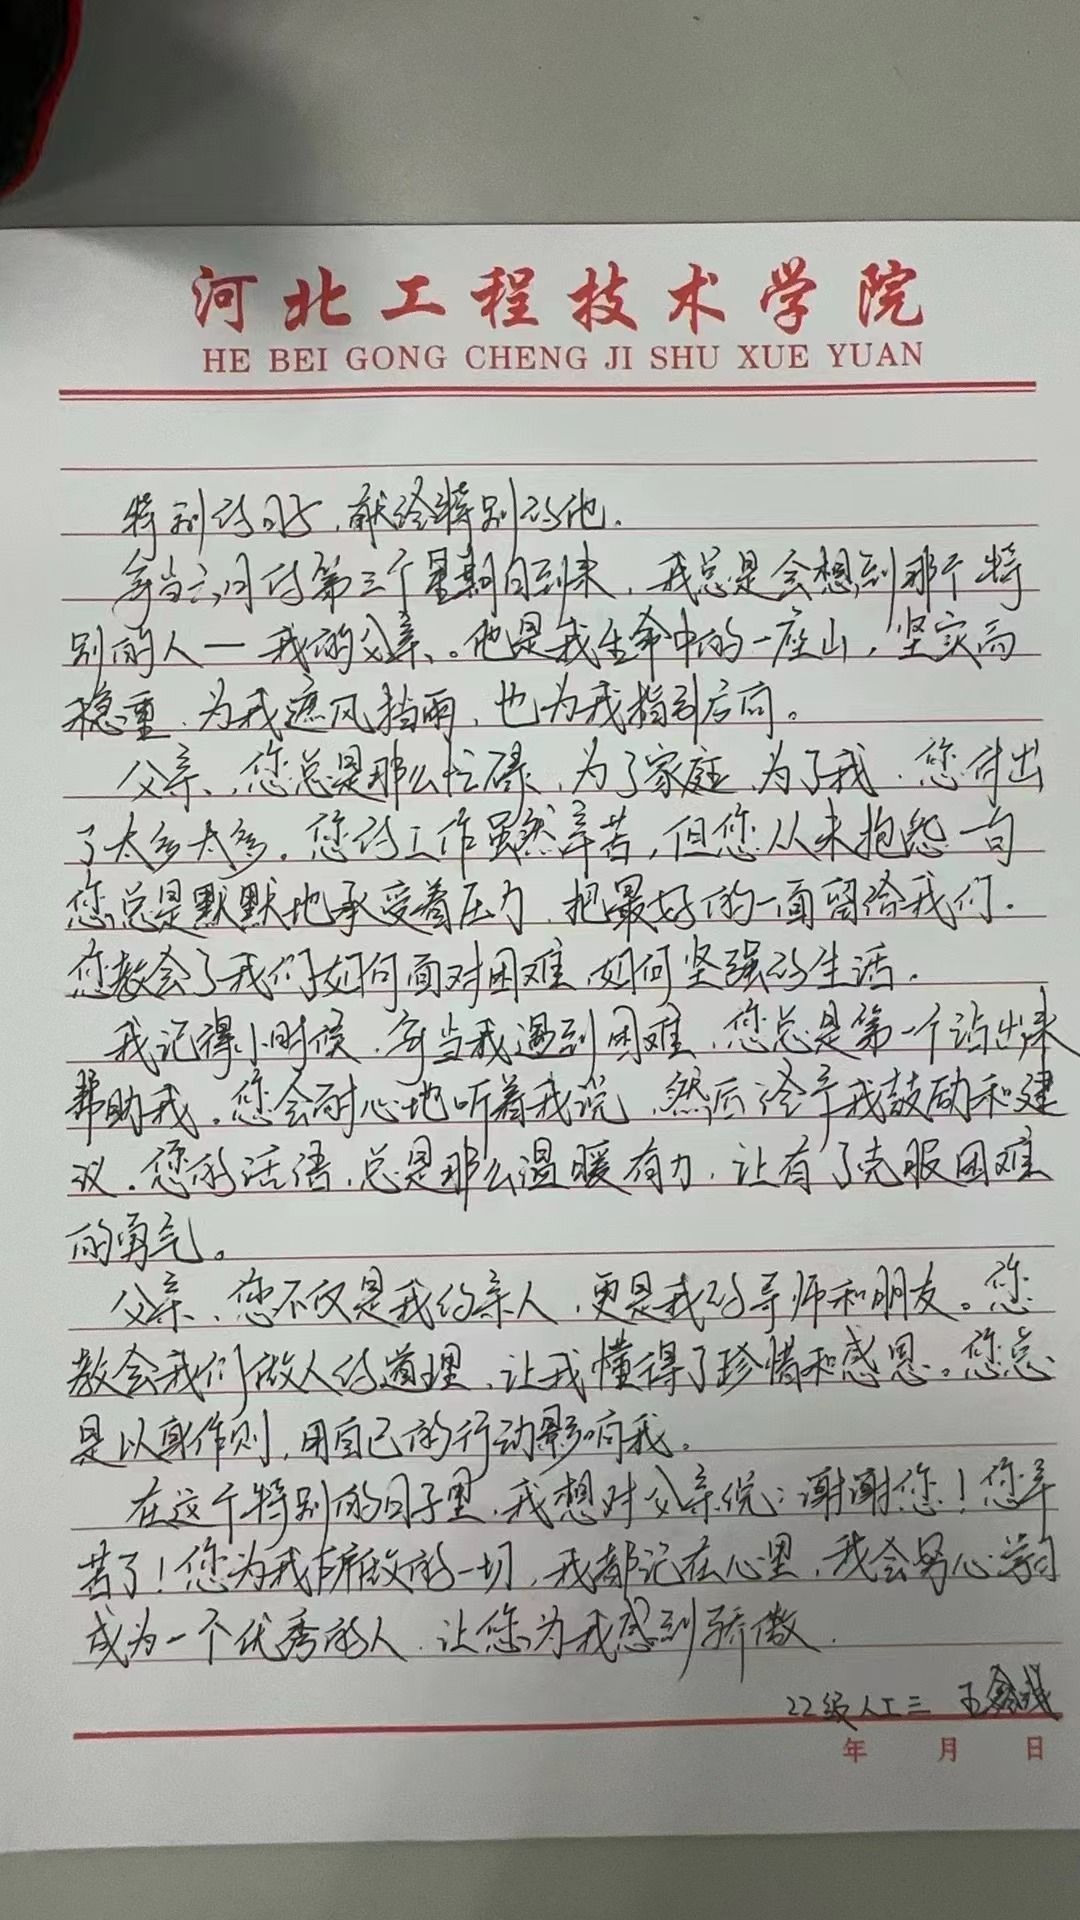 河北工程技术学院
HE BEI GONG CHENG JI SHU XUE YUAN
特别的日子,献给特别的他.
每当六月的第三个星期日到来,我总是会想到那个特
别的人一我的父亲。他是我生命中的一座山,坚实而
稳重、为我遮风挡雨,也为我指引方向。
父亲、您总是那么忙碌、为了家庭、为了我、您付出
了太多太多。您的工作虽然辛苦,但您从未抱怨一句
您总是默默地承受着压力、把最好的一面留给我们.
您教会了我们如何面对困难、如何坚强的生活.
我记得小时候、每当我遇到困难、您总是第一个站出来
帮助我。您会耐心地听着我说、然后给予我鼓励和建
议。您的话语,总是那么温暖有力,让有了克服困难
的勇气。
父亲、您不仅是我的亲人,更是我的导师和朋友。您
教会我们做人的道理、让我懂得了珍惜和感恩。您总
是以身作则,用自己的行动影响我。
在这个特别的日子里、我想对父亲说:谢谢您!您辛
苦了!您为我所做的一切,我都记在心里,我会努心学习
成为一个优秀的人、让您为我感到骄傲.
22级人工三 王
年 月 日